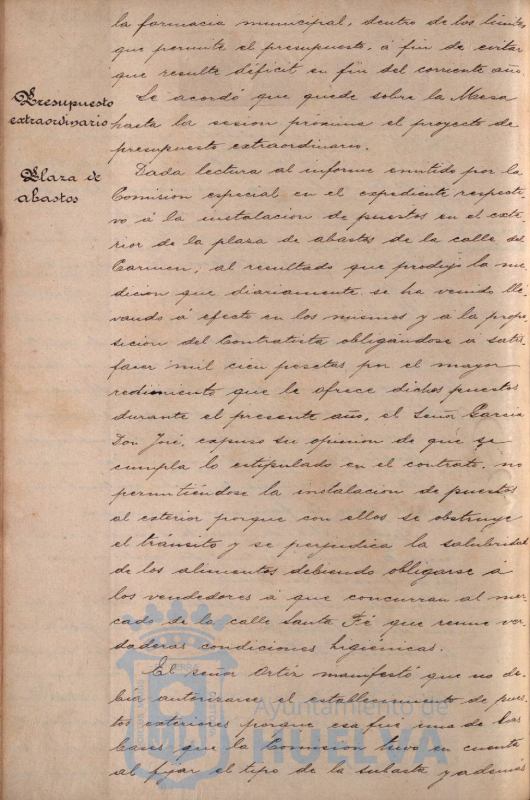 la farmacia municipal, dentro de los limites
que permite el presupuesto, á fin de evitar
que resulte déficit en fin del corriente año
Presupuesto
extraordinario
Se acordó que quede sobre la Mesa
hasta la sesion próxima el proyecto de
presupuesto extraordinario.
Plaza de
abastos
Dada lectura al informe emitido por la
Comision especial en el expediente respecti-
vo á la instalacion de puestos en el exte-
rior de la plaza de abastos de la calle del
Carmen, al resultado que produjo la me-
dicion que diariamente se ha venido lle-
vando á efecto en los mismos y á la propo-
sicion del Contratista obligándose á satis-
facer mil cien pesetas por el mayor
rendimiento que le ofrece dichos puestos
durante el presente año, el Señor Garcia
Don José, expuso su opinion de que se
cumpla lo estipulado en el contrato, no
permitiéndose la instalacion de puestos
al exterior porque con ellos se obstruye
el tránsito y se perjudica la salubridad
de los alimentos debiendo obligarse á
los vendedores á que concurran al mer-
cado de la calle Santa Fé que reune ver-
daderas condiciones higiénicas.
El señor Ortiz manifestó que no de-
bia autorizarse el establecimiento de pues-
tos exteriores porque esa fué una de las
bases que la Comision tuvo en cuenta
al fijar el tipo de la subasta y además
Ayuntamiento de
HUELVA